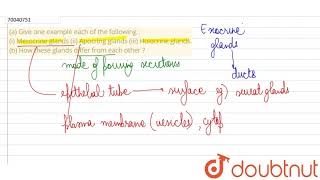 70040751
(a) Give one example each of the following :
(i) Merocrine glands (ii) Apocrine glands (iii) Holocrine glands
(b) How these glands differ from each other ?
Exocrine
glands
ducts
mode of pouring secretions
epithelial tube surface eg) sweat glands
plasma membrane (vesicles), cytop
doubtnut